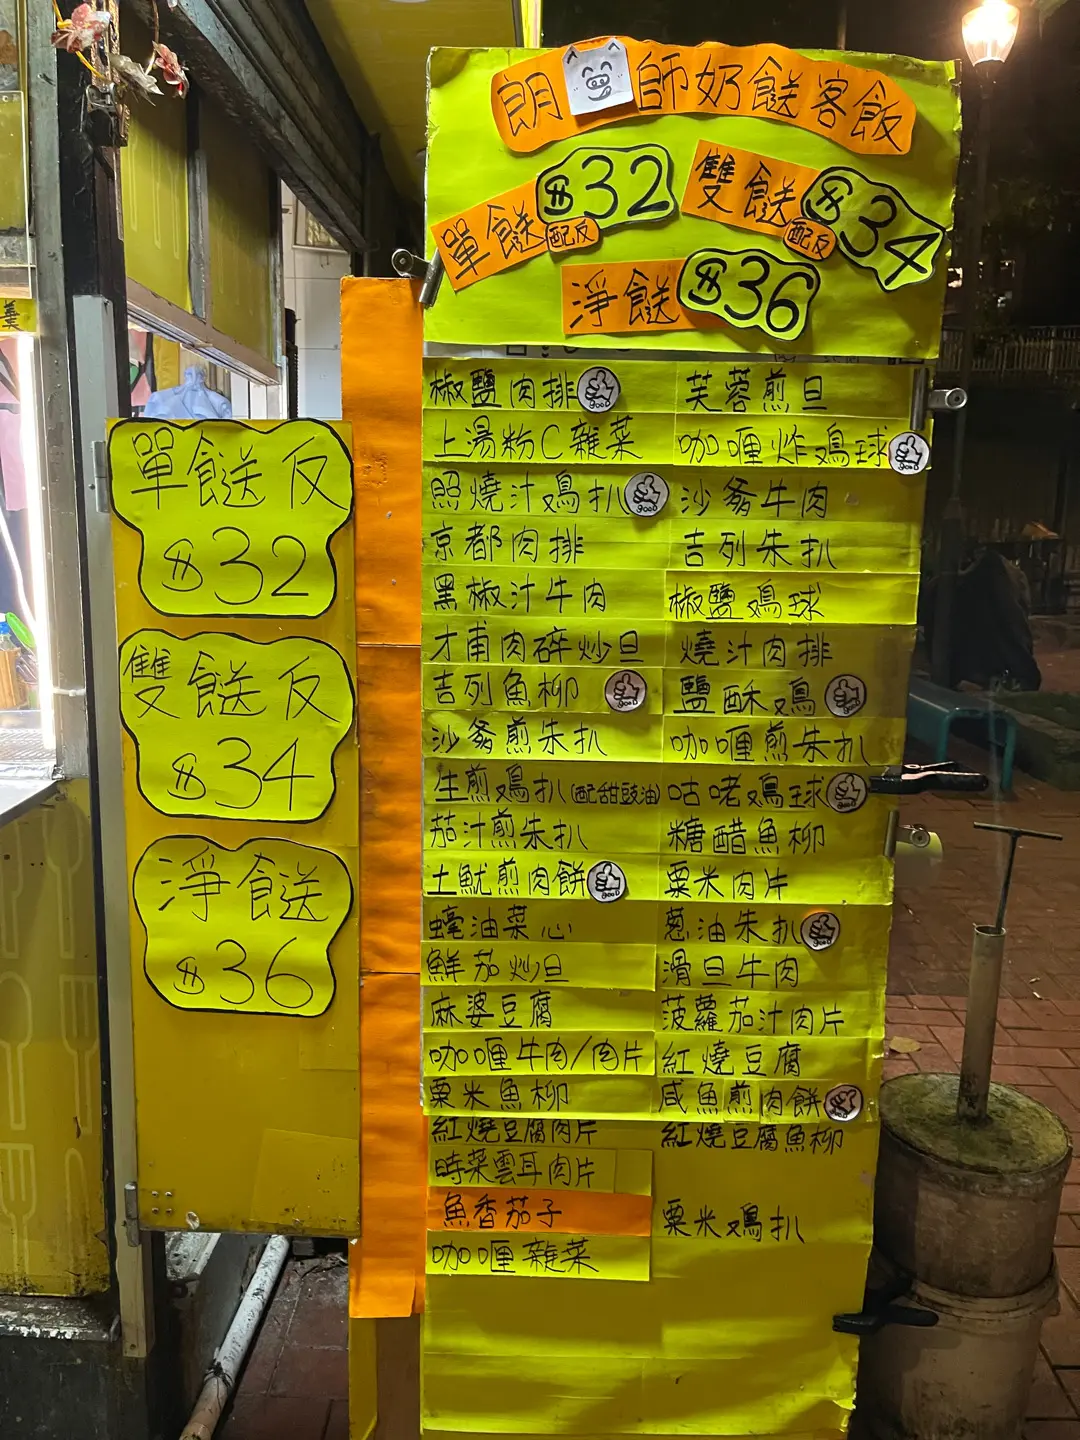 朗師奶餸客飯
單餸配反 $32
雙餸配反 $34
淨餸 $36
單餸反
$32
雙餸反
$34
淨餸
$36
椒鹽肉排 good
上湯粉C雜菜
照燒汁鳮扒 good
京都肉排
黑椒汁牛肉
才甫肉碎炒旦
吉列魚柳 good
沙爹煎朱扒
生煎鳮扒(配甜豉油)
茄汁煎朱扒
土魷煎肉餅 good
蠔油菜心
鮮茄炒旦
麻婆豆腐
咖喱牛肉/肉片
粟米魚柳
紅燒豆腐肉片
時菜雲耳肉片
魚香茄子
咖喱雜菜
芙蓉煎旦
咖喱炸鳮球 good
沙爹牛肉
吉列朱扒
椒鹽鳮球
燒汁肉排
鹽酥鳮 good
咖喱煎朱扒
咕咾鳮球 good
糖醋魚柳
粟米肉片
蔥油朱扒 good
滑旦牛肉
菠蘿茄汁肉片
紅燒豆腐
咸魚煎肉餅 good
紅燒豆腐魚柳
粟米鳮扒